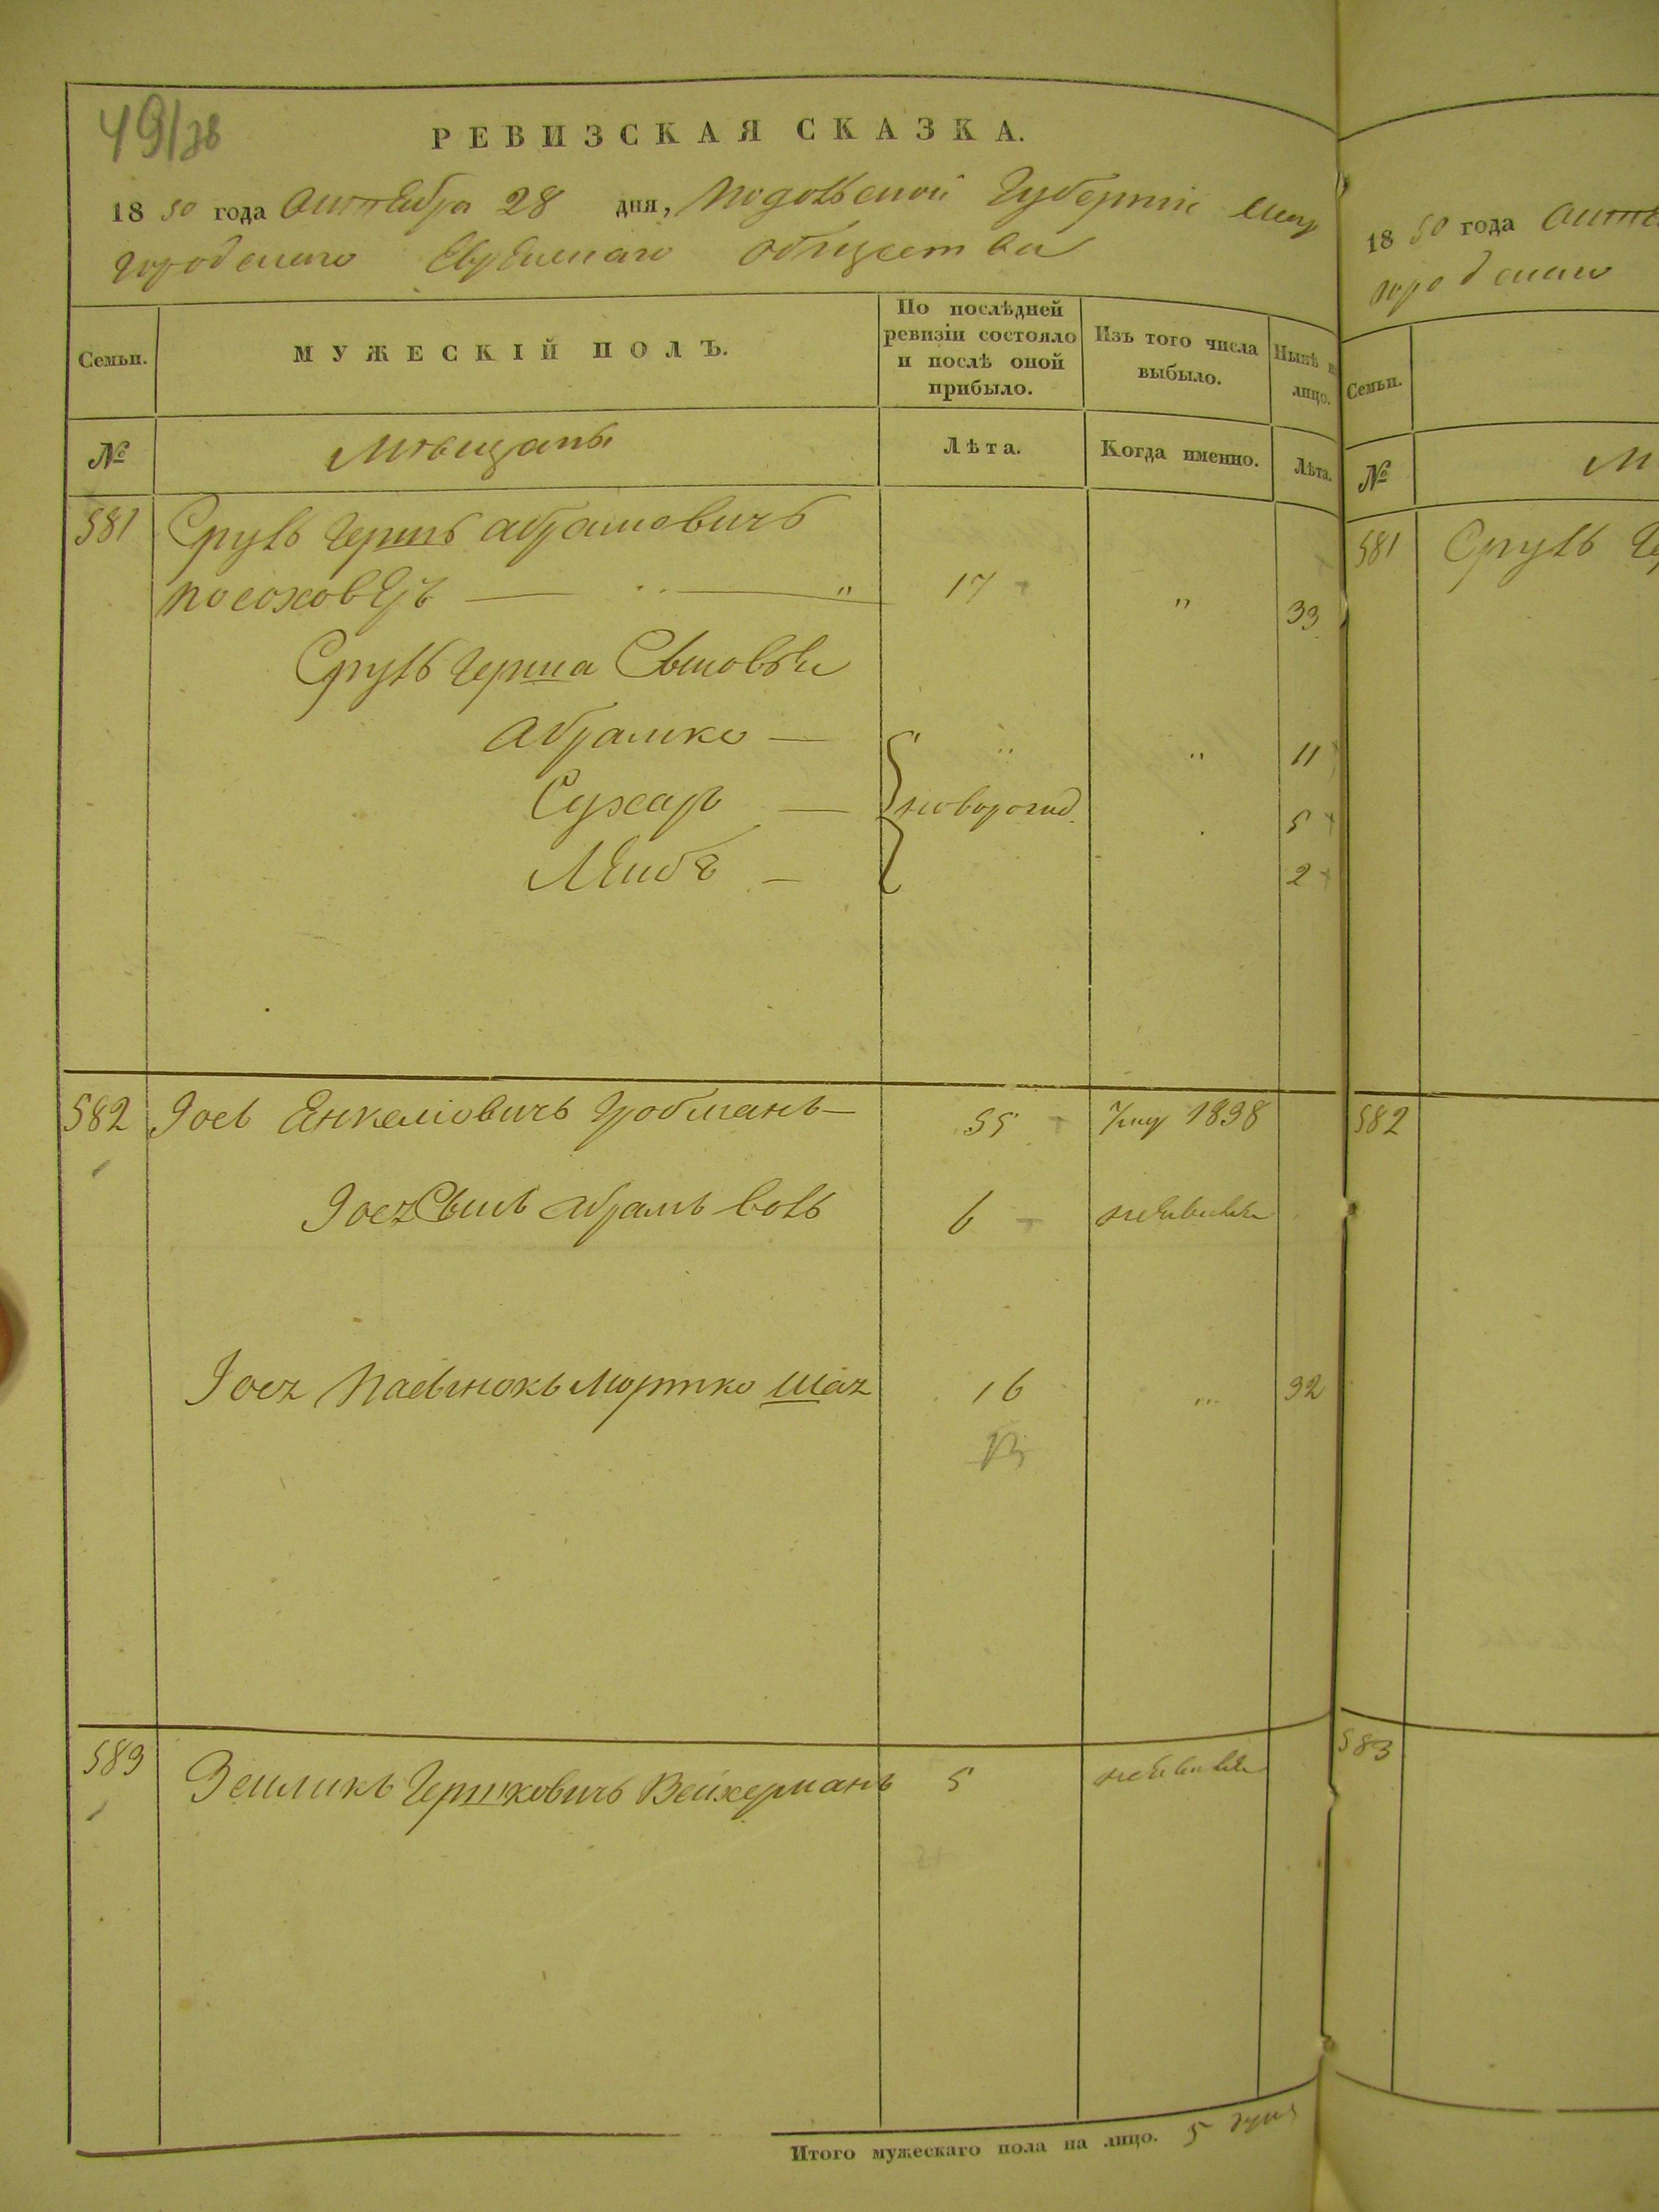 49/38
РЕВИЗСКАЯ СКАЗКА.
1850 года Октября 28 дня, Подольской Губернии
городского Еврейскаго общества
Семьи. МУЖЕСКІЙ ПОЛЪ. По послѣдней ревизіи состояло и послѣ оной прибыло. Изъ того числа выбыло. Нынѣ н лицо.
№ Мѣщане Лѣта. Когда именно. Лѣта.
581 Сруль Гершъ Абрамовичъ
Посоховецъ — " 17 " 33
Сруль Герша Сыновья
Абрамко — " " 11
Сухаръ — новорожд. 5
Лейбъ — 2
582 Іось Янкелiовичъ Гробманъ — 55 Умер 1838
Іося Сынъ Абрамъ Воль 6 неявился
Іося Пасынокъ Мортко 16 " 32
583 Зейликъ Гершковичъ Вейхерманъ 5 неявился
Итого мужескаго пола на лицо. 5 душъ
1850 года
городского
Семьи.
№ М
581 Сруль Ге
582
583